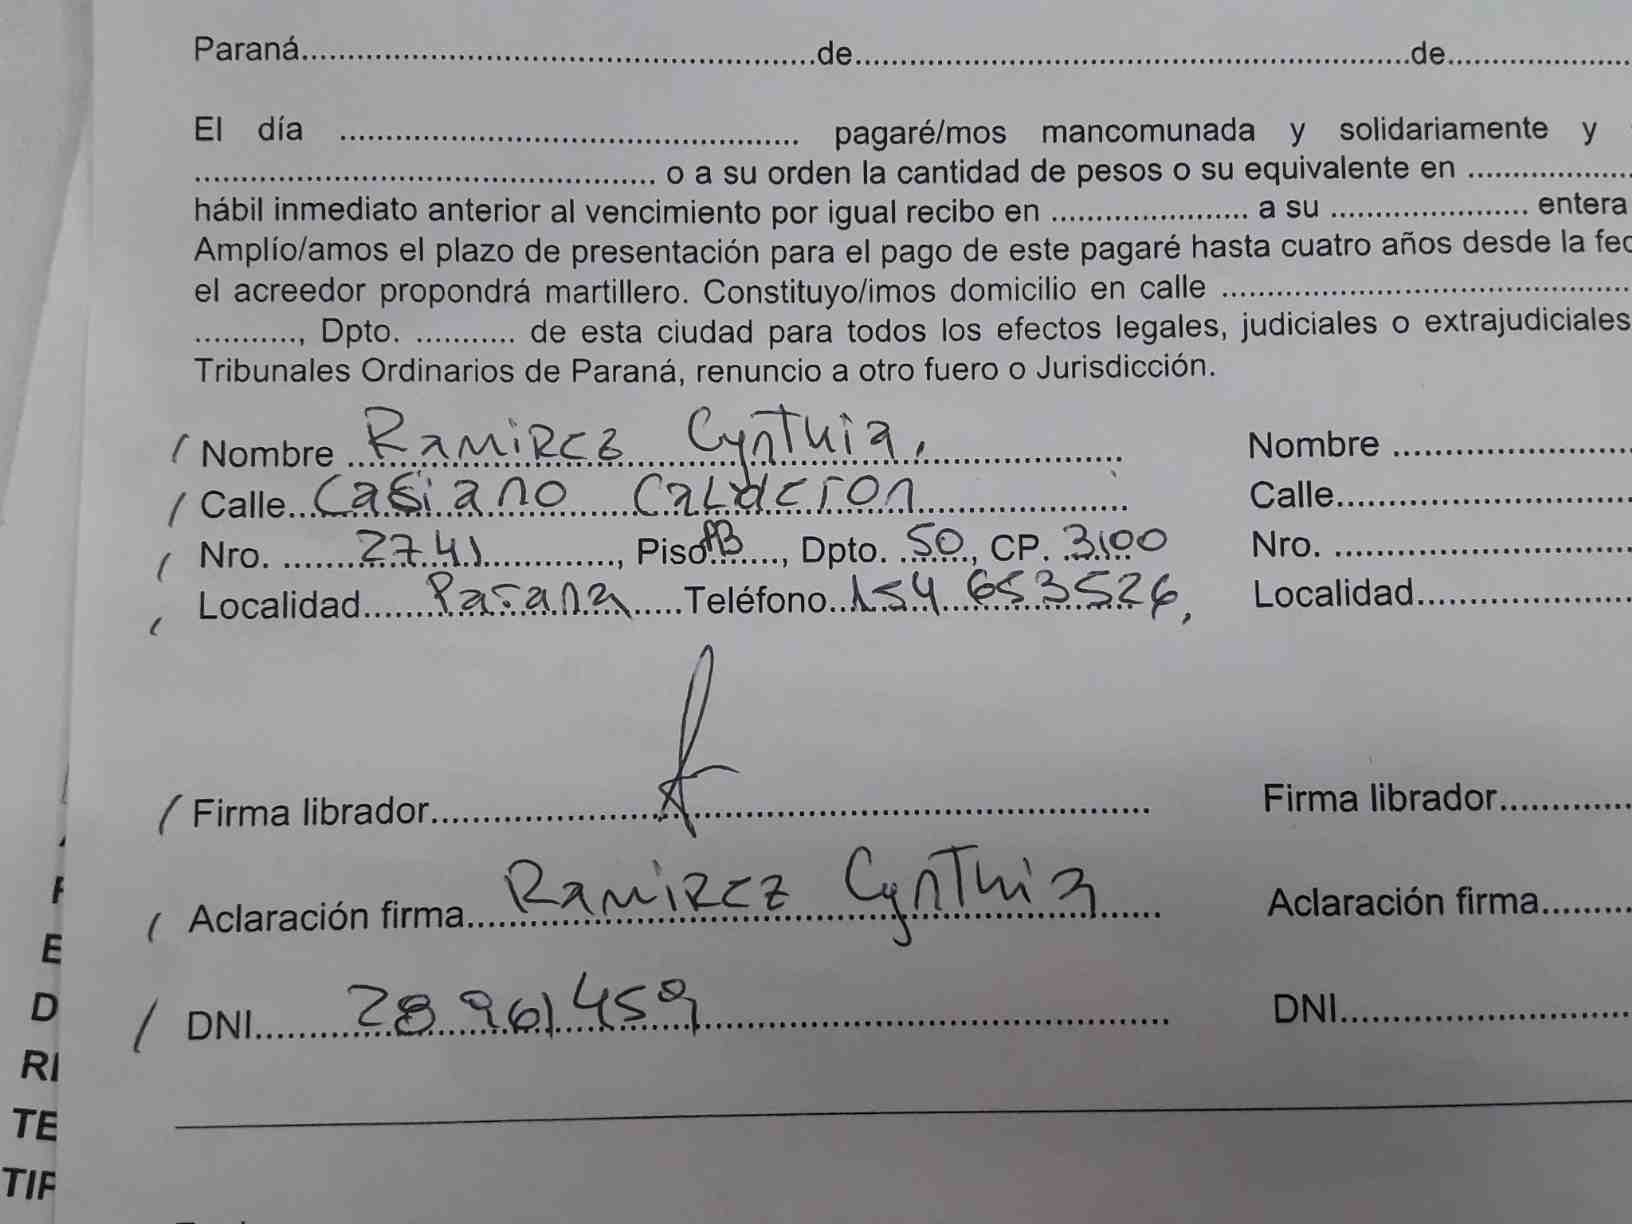 Paraná........................................de........................................de....................
El día ........................................ pagaré/mos mancomunada y solidariamente y
........................................ o a su orden la cantidad de pesos o su equivalente en ..................
hábil inmediato anterior al vencimiento por igual recibo en ...................... a su ...................... entera
Amplío/amos el plazo de presentación para el pago de este pagaré hasta cuatro años desde la fec
el acreedor propondrá martillero. Constituyo/imos domicilio en calle ........................................
..........., Dpto. ........... de esta ciudad para todos los efectos legales, judiciales o extrajudiciales
Tribunales Ordinarios de Paraná, renuncio a otro fuero o Jurisdicción.
/ Nombre Ramirez Cynthia, Nombre ....................
/ Calle Casiano Calderon Calle....................
/ Nro. 2741, Piso PB, Dpto. 50, CP. 3100 Nro. ....................
/ Localidad Parana Teléfono 154 653526, Localidad....................
/ Firma librador.................... Firma librador.............
/ Aclaración firma Ramirez Cynthia Aclaración firma..........
/ DNI 28961459 DNI....................
F
E
D
RI
TE
TIF